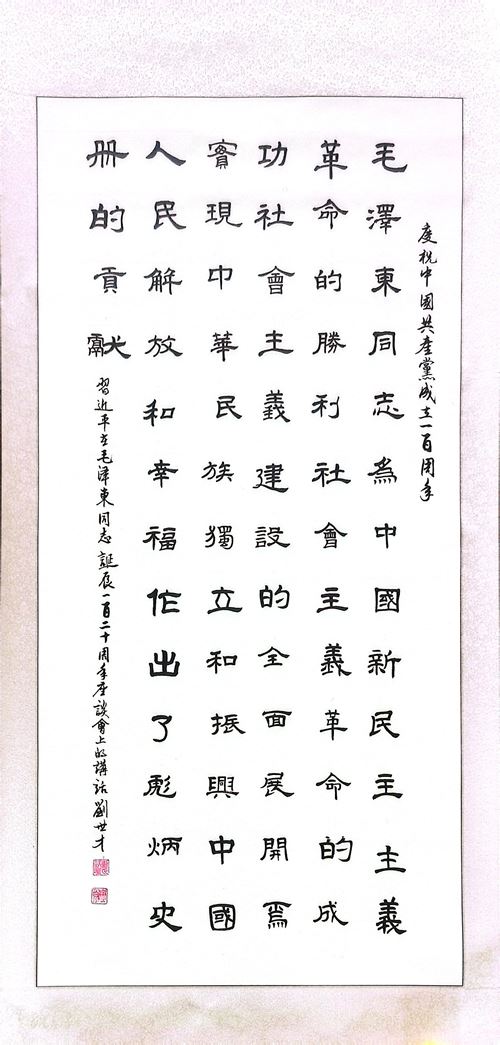 慶祝中國共產黨成立一百周年
毛澤東同志為中國新民主主義
革命的勝利社會主義革命的成
功社會主義建設的全面展開為
實現中華民族獨立和振興中國
人民解放和幸福作出了彪炳史
册的貢獻
習近平在毛澤東同志誕辰一百二十周年座談會上的講話 劉世才